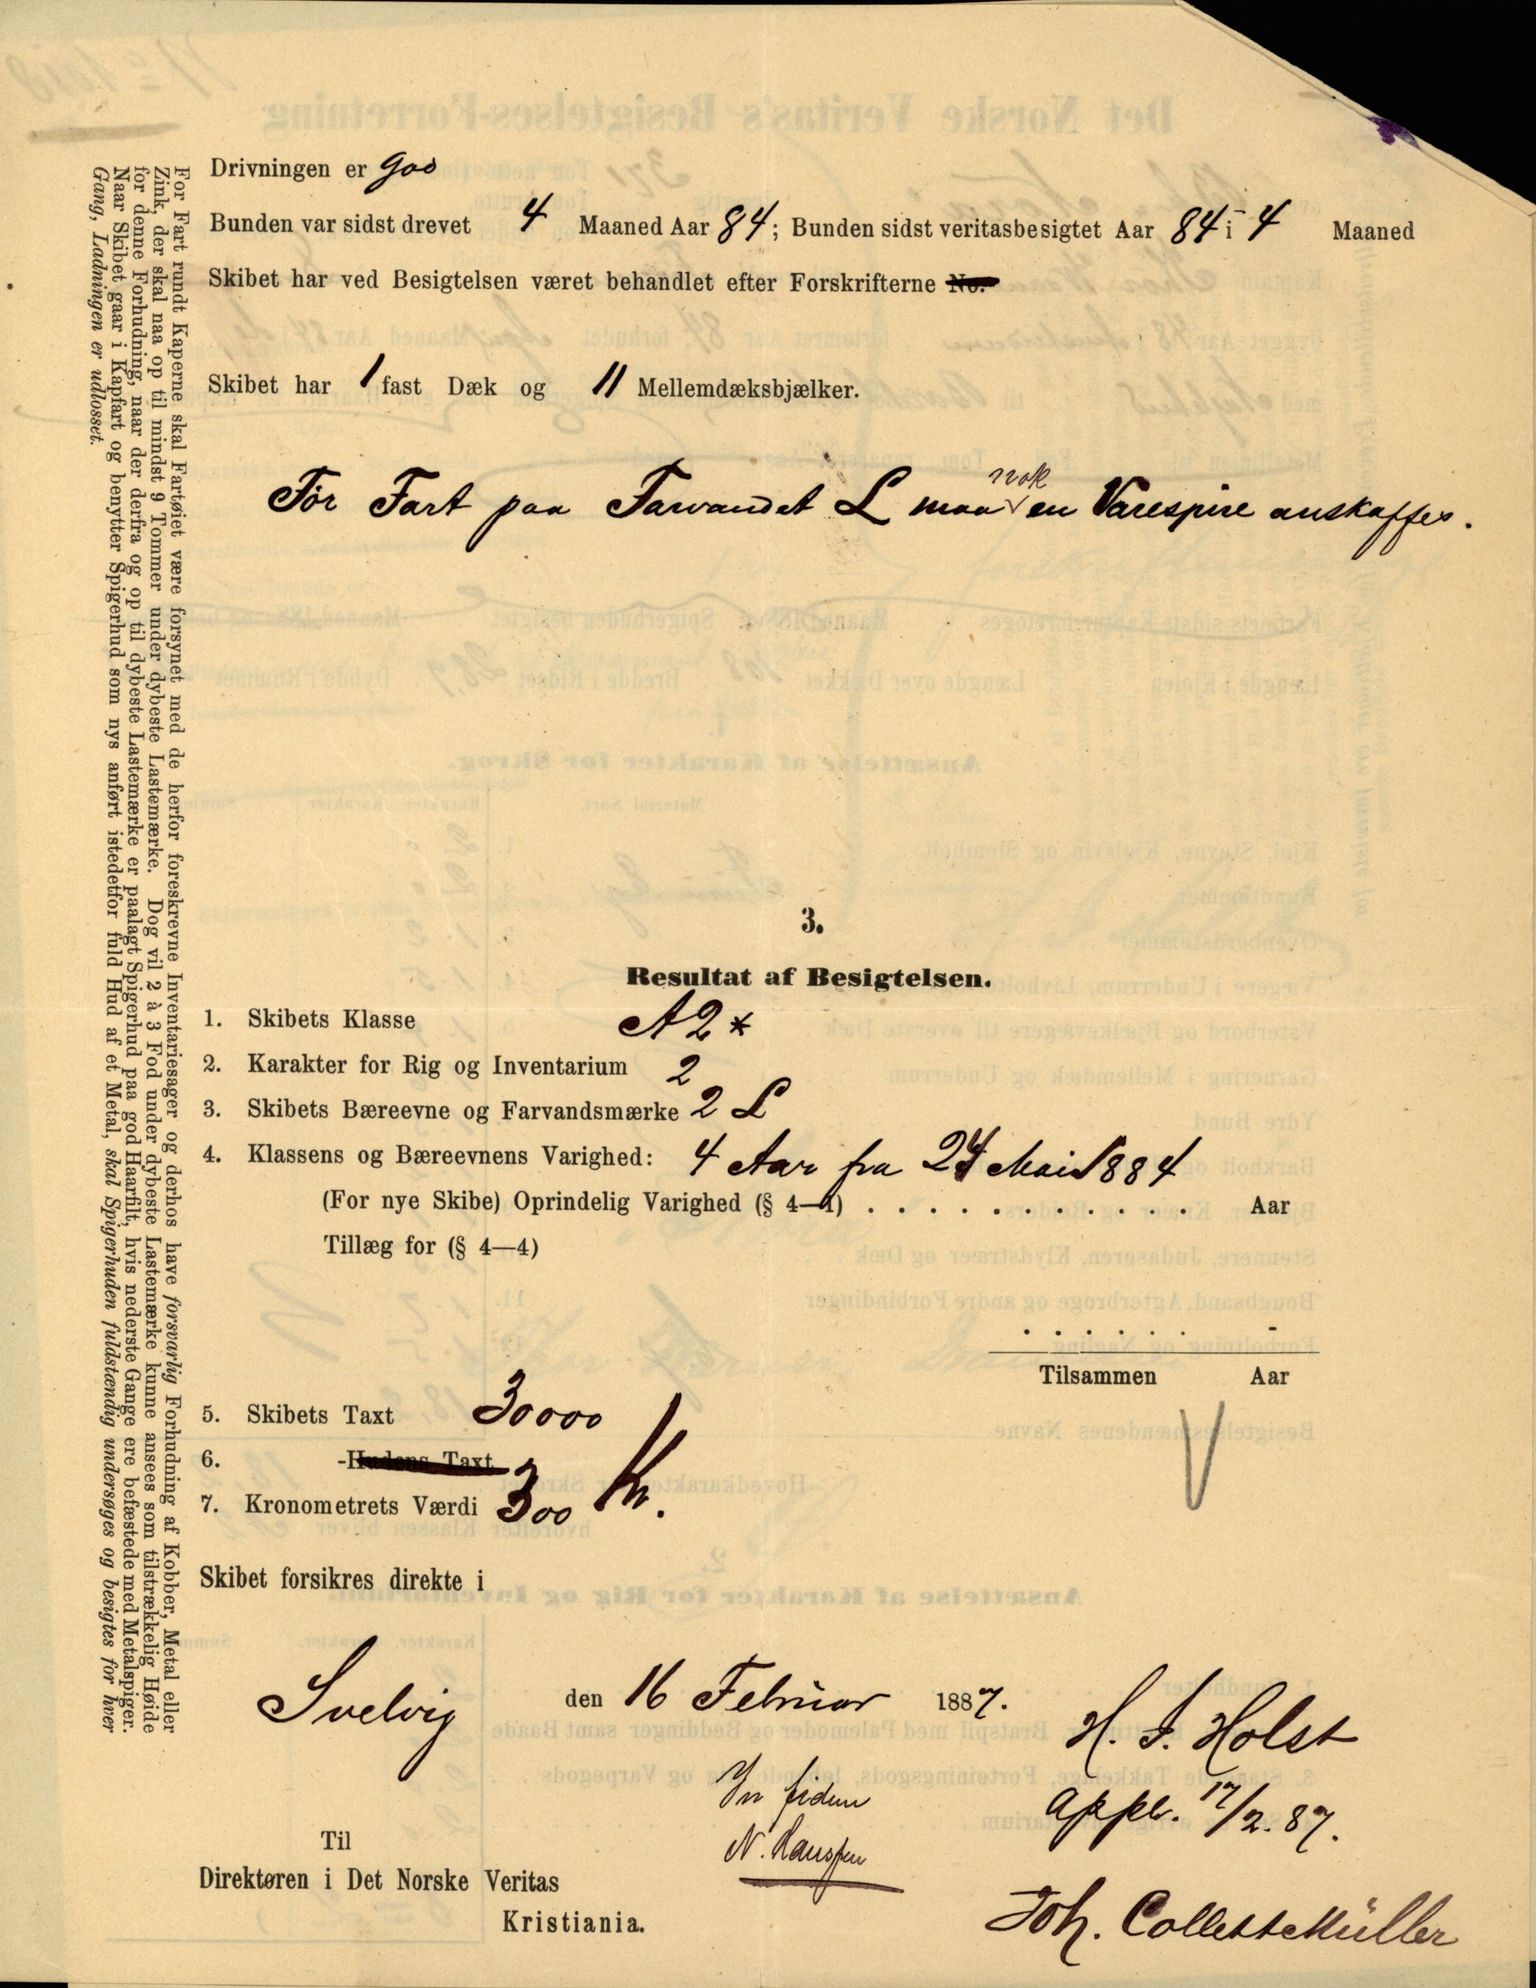 Drivningen er god
Bunden var sidst drevet 4 Maaned Aar 84; Bunden sidst veritasbesigtet Aar 84 i 4 Maaned
Skibet har ved Besigtelsen været behandlet efter Forskrifterne No.
Skibet har 1 fast Dæk og 11 Mellemdæksbjælker.
nok
För Fart paa Farvandet L maa en Varespire anskaffes.
3.
Resultat af Besigtelsen.
1. Skibets Klasse A 2 *
2. Karakter for Rig og Inventarium 2
3. Skibets Bæreevne og Farvandsmærke 2 L
4. Klassens og Bæreevnens Varighed: 4 Aar fra 24 Mai 1884
(For nye Skibe) Oprindelig Varighed (§ 4—4) . . . . . . . . . . . . Aar
Tillæg for (§ 4—4)
. . . . . . -
Tilsammen Aar
5. Skibets Taxt 30000
6. Hudens Taxt
7. Kronometrets Værdi 300 Kr.
V
Skibet forsikres direkte i
Svelvig den 16 Februar 1887.
H. J. Holst
In fidem
N. Hanssen
appr. 17/2. 87.
Joh. Collett Müller
Til
Direktøren i Det Norske Veritas
Kristiania.
For Fart rundt Kaperne skal Fartøiet være forsynet med de herfor foreskrevne Inventariesager og derhos have forsvarlig Forhudning af Kobber, Metal eller
Zink, der skal naa op til mindst 9 Tommer under dybeste Lastemærke. Dog vil 2 à 3 Fod under dybeste Lastemærke kunne ansees som tilstrækkelig Høide
for denne Forhudning, naar der derfra og op til dybeste Lastemærke er paalagt Spigerhud paa god Haarfilt, hvis nederste Gange ere befæstede med Metalspiger.
Naar Skibet gaar i Kapfart og benytter Spigerhud som nys anført istedetfor fuld Hud af et Metal, skal Spigerhuden fuldstændig undersøges og besigtes for hver
Gang, Ladningen er udlosset.